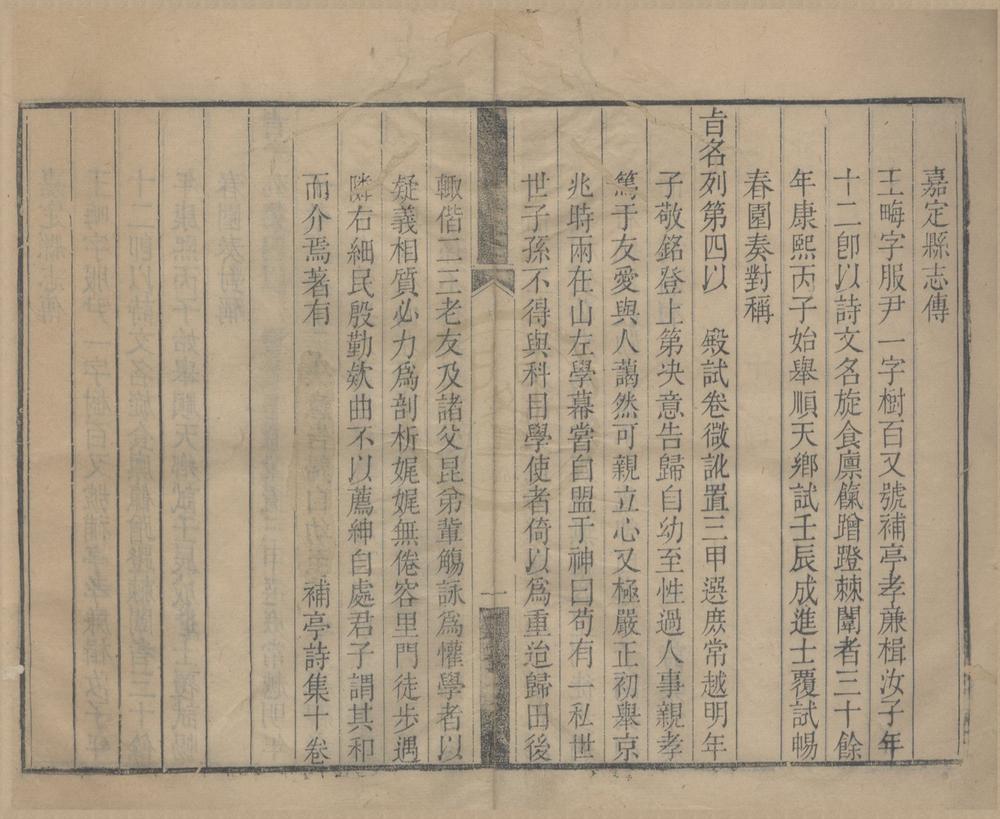 嘉定縣志傳
王晦字服尹一字樹百又號補亭孝亷楫汝子年
十二卽以詩文名旋食廪餼蹭蹬棘闈者三十餘
年康熙丙子始舉順天鄉試壬辰成進士覆試暢
春園奏對稱
㫖名列第四以　殿試卷微訛置三甲選庶常越明年
子敬銘登上第决意告歸自幼至性過人事親孝
篤于友愛與人藹然可親立心又極嚴正初舉京
兆時兩在山左學幕嘗自盟于神曰苟有一私世
世子孫不得與科目學使者倚以爲重迨歸田後
一
輙偕二三老友及諸父昆弟輩觴詠爲懽學者以
疑義相質必力爲剖析娓娓無倦容里門徒步遇
隣右細民殷勤欵曲不以薦紳自處君子謂其和
而介焉著有
補亭詩集十卷